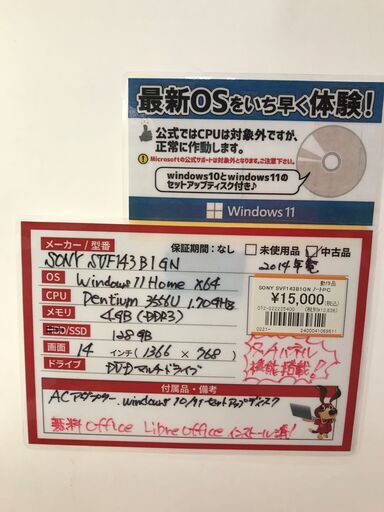 最新OSをいち早く体験!
公式ではCPUは対象外ですが、
正常に作動します。
Microsoftの公式サポートは対象外となります。ご注意下さい。
windows10とwindows11の
セットアップディスク付き♪
Windows 11
メーカー / 型番
保証期間：なし
未使用品
中古品
SONY SVF143B1GN
2014年発
OS
Windows 11 Home x64
CPU
Pentium 3556U 1.70GHz
メモリ
4GB (DDR3)
HDD/SSD
128GB
画面
14 インチ (1366 × 768)
ドライブ
DVDマルチドライブ
動作品
SONY SVF143B1GN ノートPC
¥15,000(税込)
タッチパネル
機能搭載!
付属品・備考
ACアダプター、Windows 10/11セットアップディスク
無料Office LibreOffice インストール済!